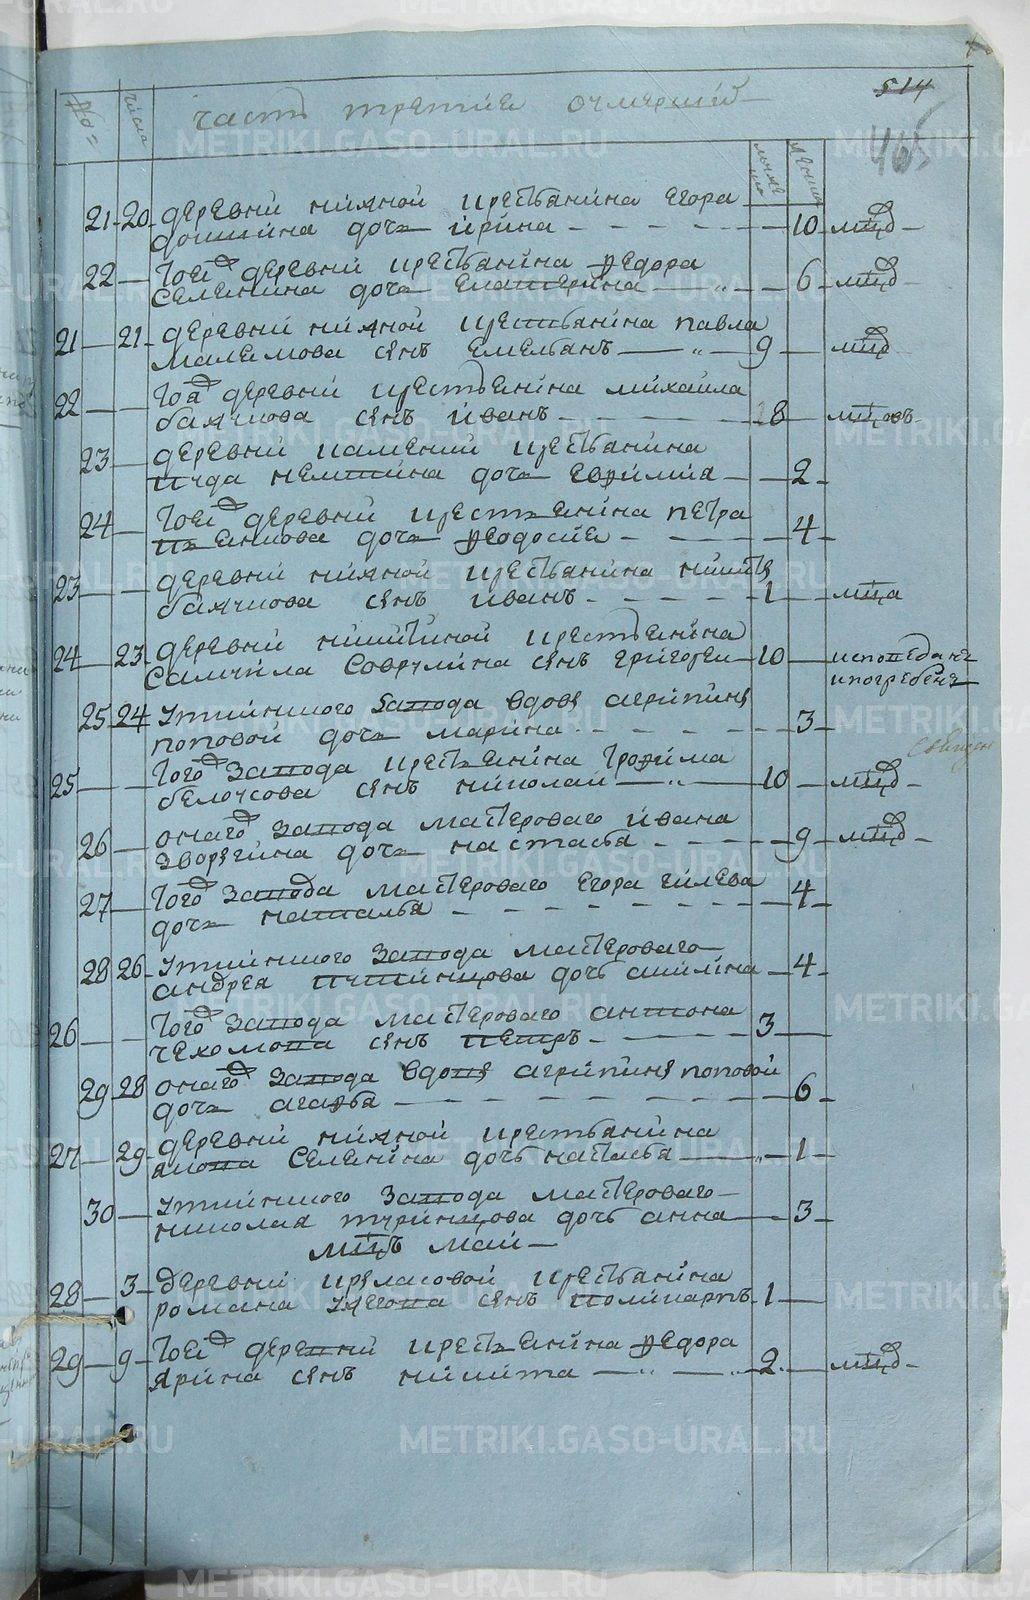 №
числа
часть третие о умерший
514
465
мужескаго
женска
21 20 деревни нижной крестьянина Егора
дошкина дочь ирина 10 мцд
22 Тоейд деревни крестьянина Федора
Семенина дочь Екатерина 6 мцд
21 21 деревни нижной крестьянина павла
малемова сынъ Емельянъ 9 мцд
22 Тояд деревни крестьянина михаила
бажукова сынъ иванъ 8 мцовъ
23 деревни каменки крестьянина
дочь Евфимия 2
24 Тоейд деревни крестьянина петра
дочь Феодосие 4
23 деревни нижной крестьянина никиты
бажукова сынъ иванъ 1 мца
24 23 деревни никитиной крестьянина
Самуила Совrулина сынъ григореи 10 исповеданъ
и погребенъ
25 24 уткинского завода вдовы агрипины
поповой дочь марина 3
25 Тогод завода крестьянина Трофима
белоусова сынъ николай 10 мцд
26 онагод завода мастероваго ивана
Зворыгина дочь настасья 9 мцд
27 Тогод завода мастероваго Егора гилева
дочь наталья 4
28 26 уткинского завода мастероваго
андрея дочь акилина 4
26 Тогод завода мастероваго антона
чехомова сынъ петръ 3
29 28 онагод завода вдовы агрипины поповой
дочь агафья 6
27 29 деревни нижной крестьянина
якова Семенина дочь настасья 1
30 уткинского завода мастероваго
николая туринцова дочь анна 3
мцъ май
28 3 деревни крыласовой крестьянина
романа сынъ поликарпъ 1
29 9 Тоейд деревни крестьянина Федора
ярина сынъ никита 2 мцд
METRIKI.GASO-URAL.RU